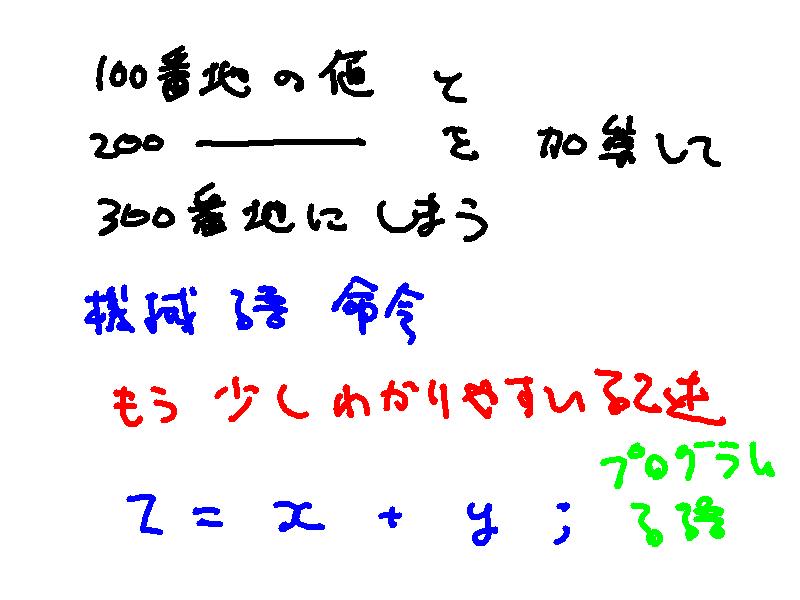 100番地の値 と
200 ――― を 加算して
300番地に しまう
機械語 命令
もう 少し わかりやすい 記述
プログラム
言語
z = x + y ;